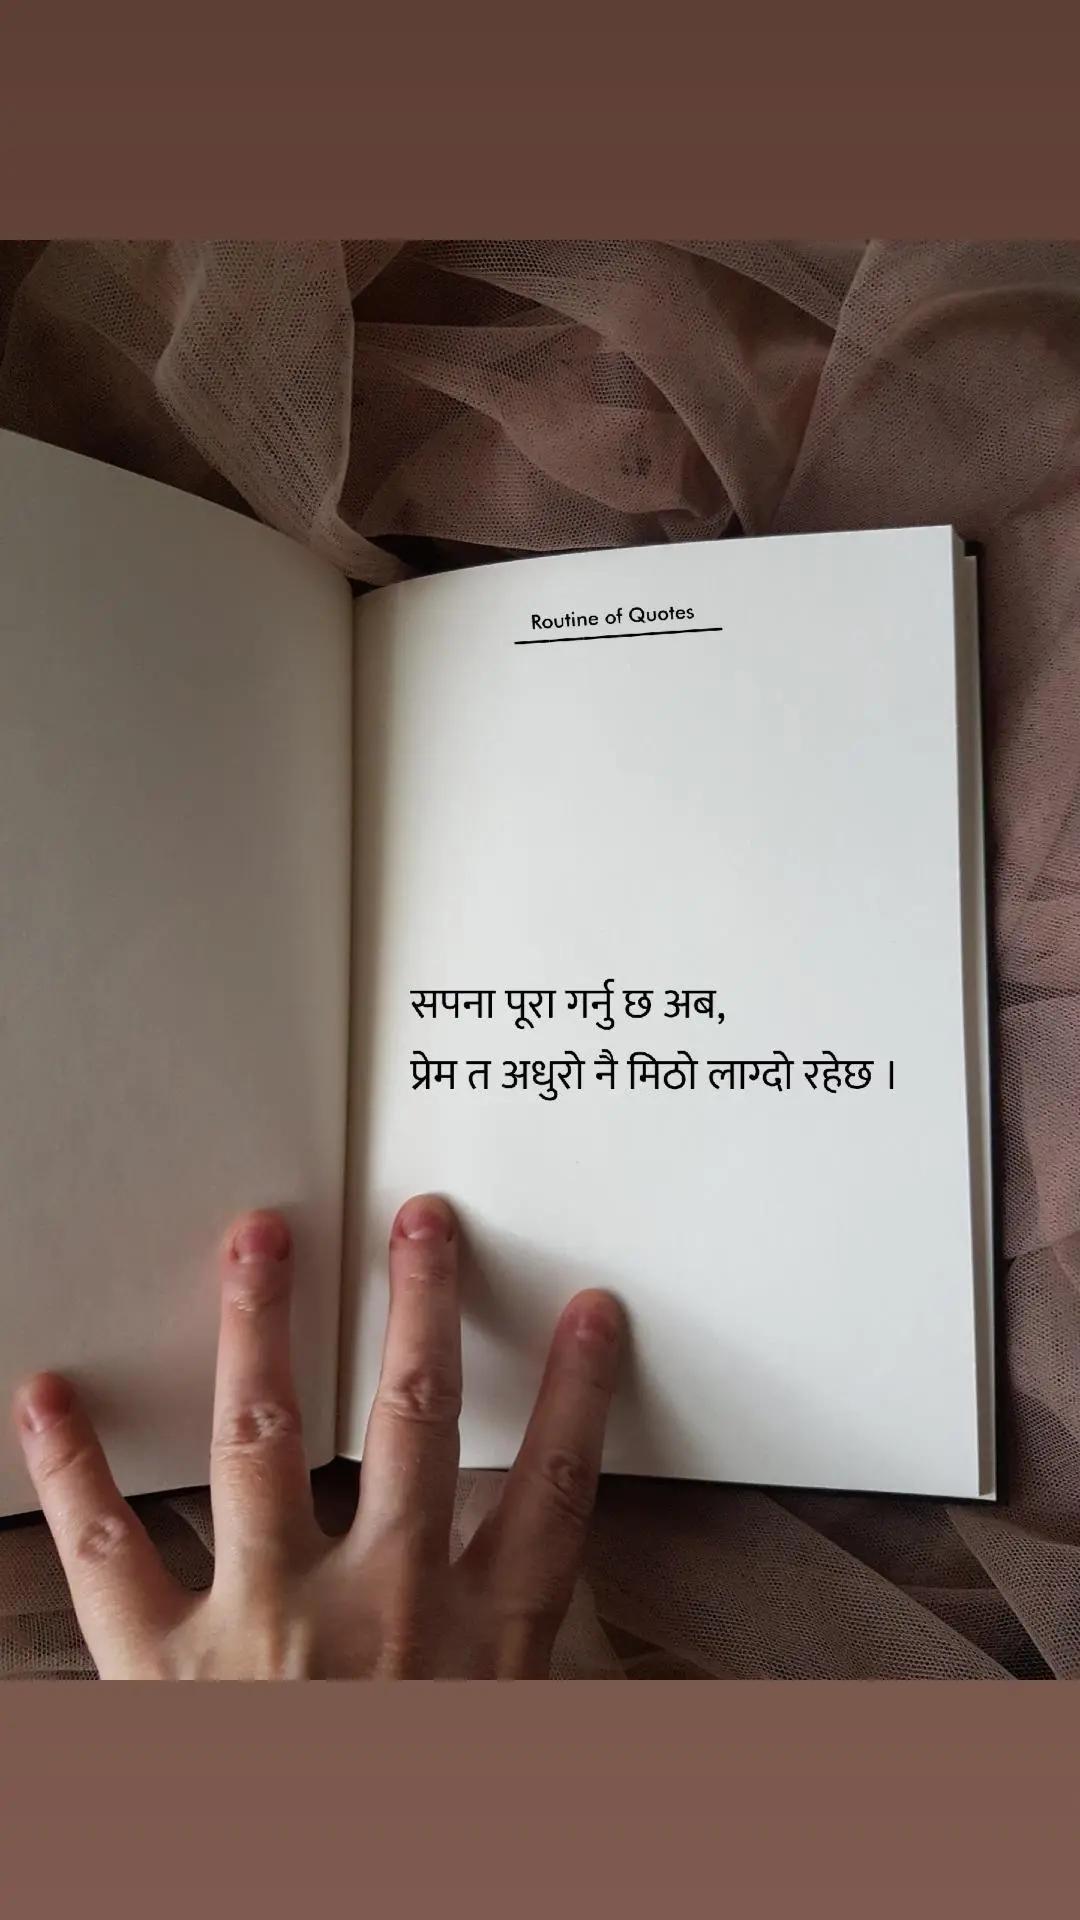 Routine of Quotes
सपना पूरा गर्नु छ अब,
प्रेम त अधुरो नै मिठो लाग्दो रहेछ ।